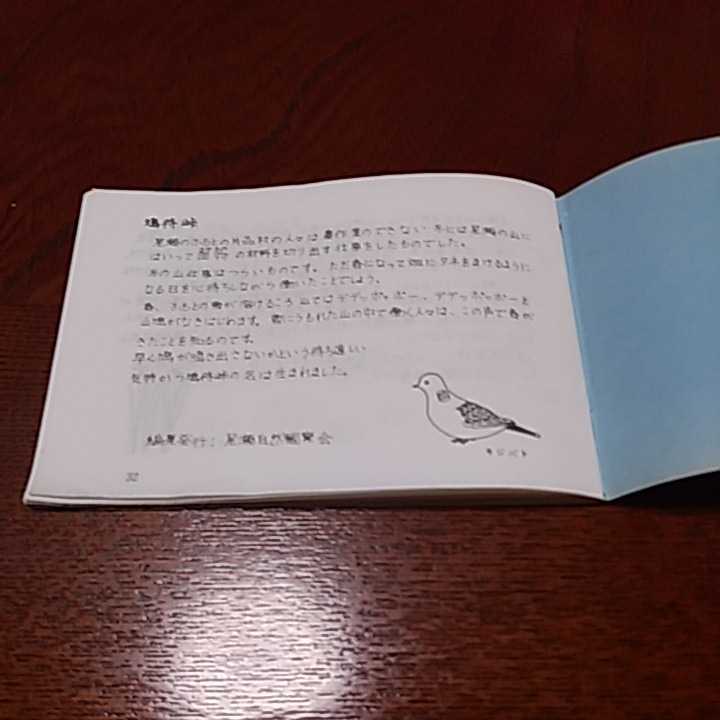 鳩待峠
尾瀬のふもとの片品村の人々は農作業のできない冬には尾瀬の山に
はいって の材料を切り出す仕事をしたものでした。
冬の山仕事はつらいものです。ただ春になって畑にタネをまけるように
なる日を心待ちしながら働いたことでしょう。
春、ふもとの雪が溶けるころ山ではデデッポッポー、デデッポッポーと
山鳩がなきはじめます。雪にうもれた山の中で働く人々は、この声で春が
きたことを知るのです。
早く鳩が鳴き出さないかという待ち遠しい
気持から鳩待峠の名は生まれました。
編集発行：尾瀬自然観察会
キジバト
32